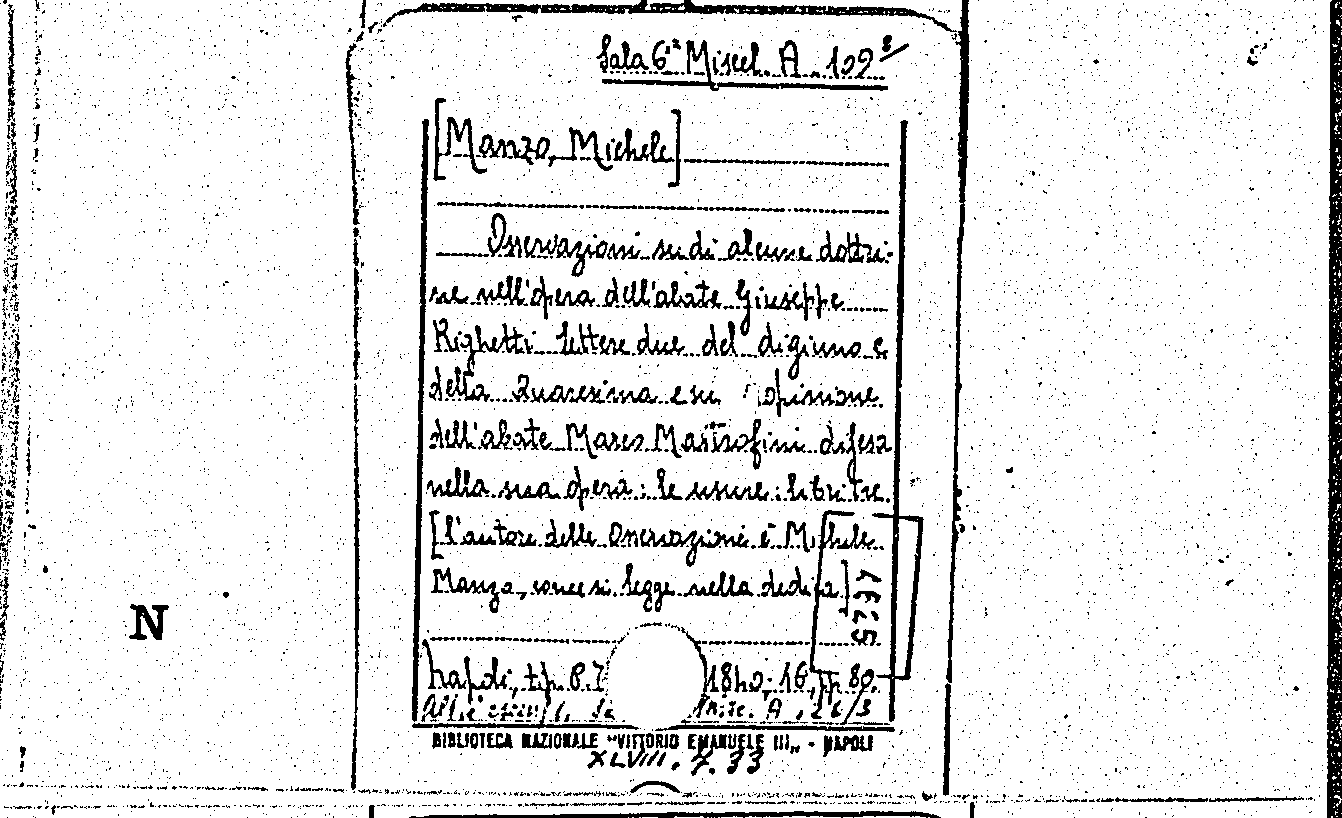 Sala 6ª Miscel. A. 109 8/
[Manzo, Michele]
Osservazioni su di alcune dottri-
ne nell'opera dell'abate Giuseppe
Righetti lettere due del digiuno e
della Quaresima e su opinione
dell'abate Marco Mastrofini difesa
nella sua opera: le usure: libri tre.
[l'autore delle Osservazioni è Michele
Manzo, come si legge nella dedica]
Napoli, tip.
1840. 16, pp 80.
Misc. A, 26/3
BIBLIOTECA NAZIONALE "VITTORIO EMANUELE III„ - NAPOLI
XLVIII. 7. 33
N